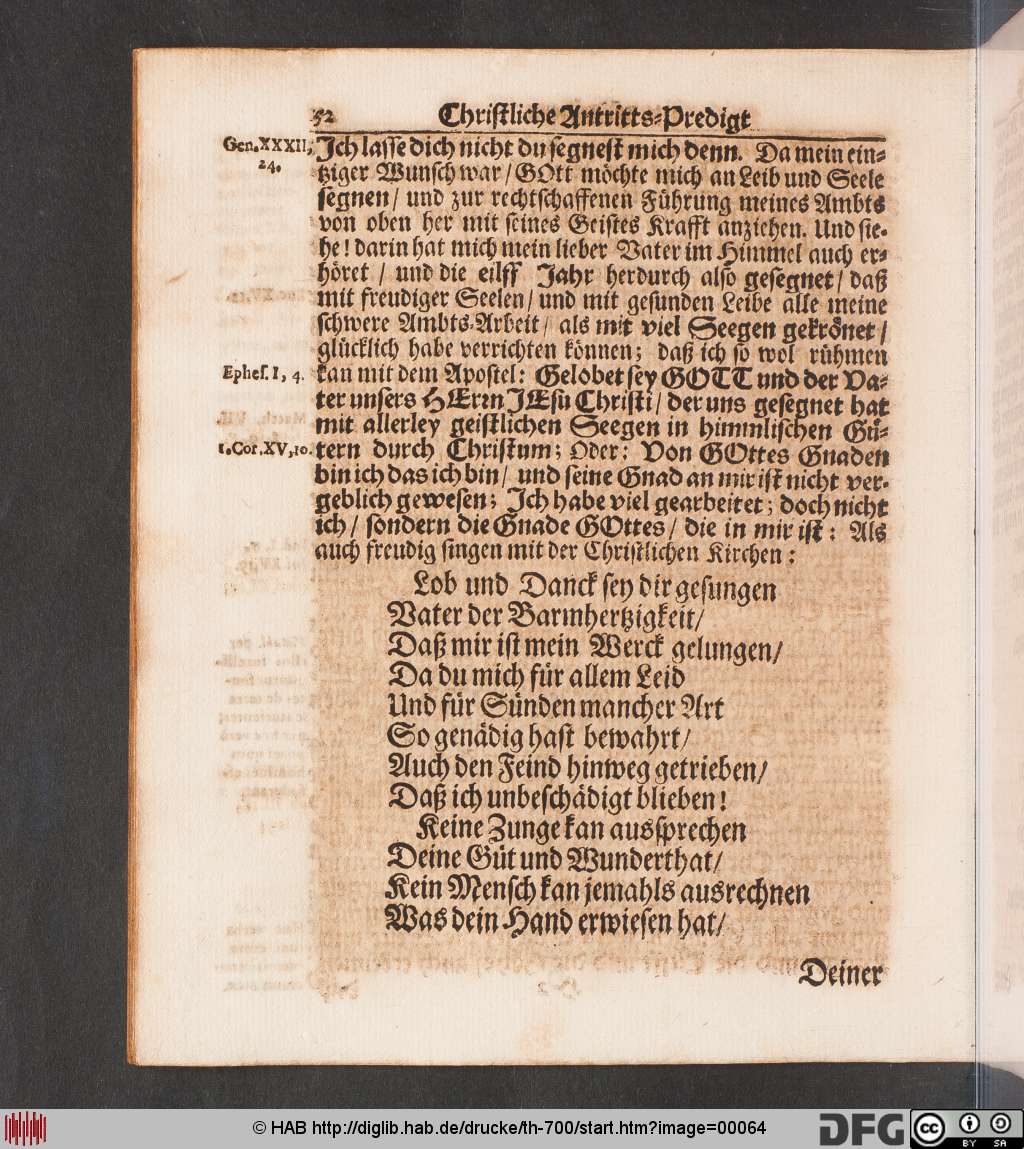 52 Christliche Antritts-Predigt
Gen. XXXII, 24.
Jch lasse dich nicht du segnest mich denn. Da mein ein-
tziger Wunsch war / GOtt möchte mich an Leib und Seele
segnen / und zur rechtschaffenen Führung meines Ambts
von oben her mit seines Geistes Krafft anziehen. Und sie-
he! darin hat mich mein lieber Vater im Himmel auch er-
höret / und die eilff Jahr herdurch also gesegnet / daß
mit freudiger Seelen / und mit gesunden Leibe alle meine
schwere Ambts-Arbeit / als mit viel Seegen gekrönet /
glücklich habe verrichten können; daß ich so wol rühmen
Ephes. I, 4.
kan mit dem Apostel: Gelobet sey GOTT und der Va-
ter unsers HErrn JEsu Christi / der uns gesegnet hat
mit allerley geistlichen Seegen in himmlischen Gü-
1. Cor. XV, 10.
tern durch Christum; Oder: Von GOttes Gnaden
bin ich das ich bin / und seine Gnad an mir ist nicht ver-
geblich gewesen; Jch habe viel gearbeitet; doch nicht
ich / sondern die Gnade GOttes / die in mir ist: Als
auch freudig singen mit der Christlichen Kirchen:
Lob und Danck sey dir gesungen
Vater der Barmhertzigkeit /
Daß mir ist mein Werck gelungen /
Da du mich für allem Leid
Und für Sünden mancher Art
So genädig hast bewahrt /
Auch den Feind hinweg getrieben /
Daß ich unbeschädigt blieben!
Keine Zunge kan aussprechen
Deine Güt und Wunderthat /
Kein Mensch kan jemahls ausrechnen
Was dein Hand erwiesen hat /
Deiner
© HAB http://diglib.hab.de/drucke/th-700/start.htm?image=00064
DFG
cc BY SA